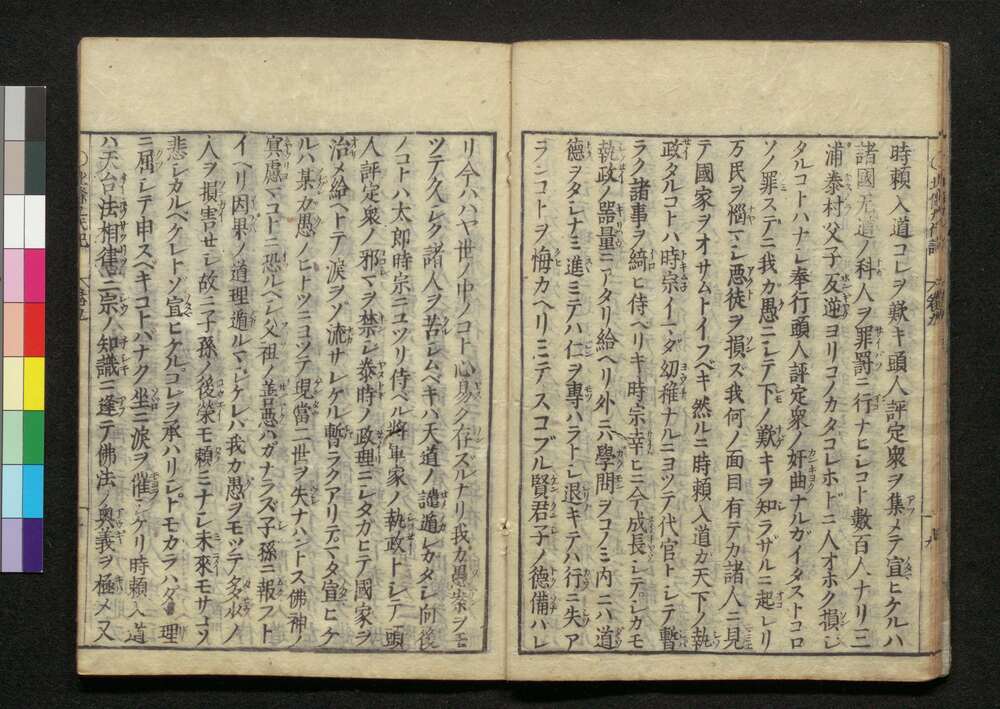 時頼入道コレヲ歎キ頭人評定衆ヲ集メテ宣ヒケルハ
諸國无道ノ科人ヲ罪罸ニ行ナヒシコト數百人ナリ三
浦泰村父子反逆ヨリコノカタコレホドニ人オホク損シ
タルコトハナシ奉行頭人評定衆ノ奸曲ナルガイタストコロ
ソノ罪ステニ我カ愚ニシテ下ノ歎キヲ知ラザルニ起レリ
万民ヲ惱マシ悪徒ヲ損ズ我何ノ面目有テカ諸人ニ見
テ國家ヲオサムトイフベキ然ルニ時頼入道カ天下ノ執
政タルコトハ時宗イマダ幼稚ナルニヨツテ代官トシテ暫
ラク諸事ヲ綺ヒ侍ヘリキ時宗幸ヒニ今成長シテシカモ
執政ノ器量ニアタリ給ヘリ外ニハ學問ヲコノミ内ニハ道
德ヲタシナミ進ミテハ仁ヲ專ハラトシ退キテハ行ニ失ア
ランコトヲ悔カヘリミテスコブル賢君子ノ德備ハレ
リ今ハハヤ世ノ中ノコト心易ク存ズルナリ我カ愚案ヲモ
ツテ久シク諸人ヲ苦シムベキハ天道ノ譴遁レカタシ向後
ノコトハ太郎時宗ニユツリ侍ベル將軍家ノ執政トシテ頭
人評定衆ノ邪マヲ禁シ泰時ノ政理ニシタガヒテ國家ヲ
治メ給ヘトテ涙ヲゾ流サレケル暫ラクアリテマタ宣ヒケ
ルハ某カ愚ノヒトツニコソテ現當二世ヲ失ナハントス佛神ノ
冥慮マコトニ恐ルベシ父祖ノ善悪ハカナラズ子孫ニ報フト
イヘリ因果ノ道理遁ルマシケレハ我カ愚ヲモツテ多クノ
人ヲ損害セシ故ニ子孫ノ後榮モ頼ミナシ未來モサコソ
悲シカルベケレトゾ宣ヒケルコレヲ承ハリシトモカラハ理
ニ屈シテ申スベキコトバナク坐ニ涙ヲ催シケリ時頼入道
ハ天台法相律三宗ノ知識ニ逢テ佛法ノ奥義ヲ極メ又